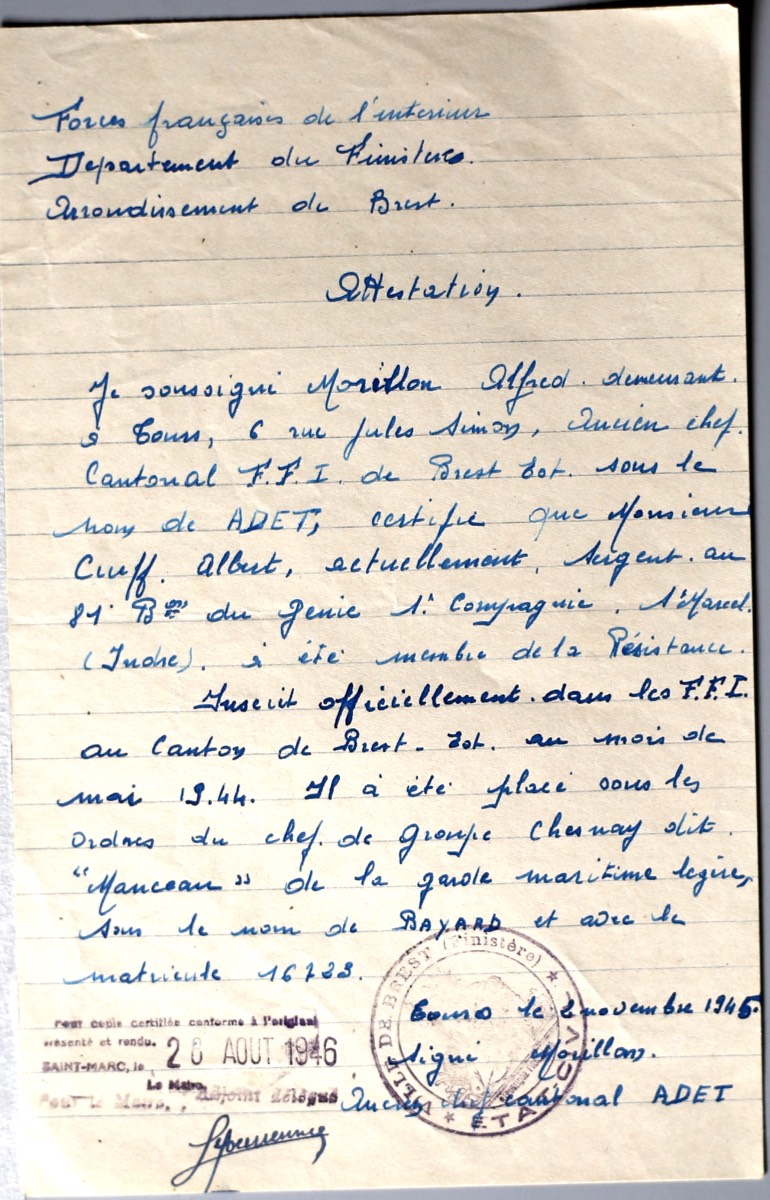 Forces françaises de l'interieur
Departement du Finistere.
Arrondissement de Brest.
Attestation.
Je soussigné Morillon Alfred. demeurant.
à Tours, 6 rue Jules Simon, Ancien chef.
Cantonal F.F.I. de Brest Est. sous le
nom de ADET, certifie que Monsieur
Cueff. Albert, actuellement, Sergent. au
81° Bon du Genie 1e Compagnie. St Marcel.
(Indre). à été membre de la Résistance.
Inscrit officiellement. dans les F.F.I.
au Canton de Brest-Est. au mois de
mai 19.44. Il à été placé sous les
Ordres du chef. de Groupe Chesnay dit.
"Manceau" de la garde maritime legère,
sous le nom de BAYARD et avec le
matricule 16733.
Tours le 2 novembre 1945.
Signé Morillon.
Ancien chef cantonal ADET
VILLE DE BREST (Finistère)
ÉTAT CIVIL
Pour copie certifiée conforme à l'original
présenté et rendu.
SAINT-MARC, le 26 AOUT 1946
Le Maire,
Pour le Maire, Adjoint délégué